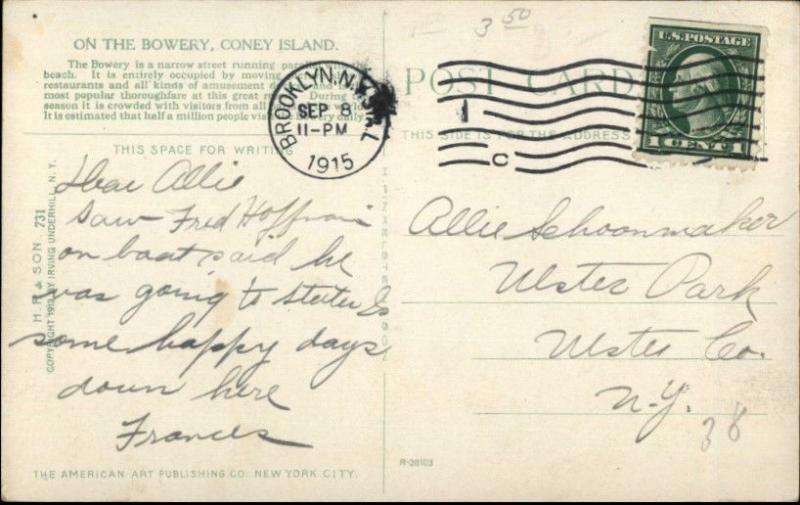 3 50
ON THE BOWERY, CONEY ISLAND.
The Bowery is a narrow street running
beach. It is entirely occupied by moving
restaurants and all kinds of amusement
most popular thoroughfare at this great During
season it is crowded with visitors from all
It is estimated that half a million people daily.
THIS SPACE FOR WRITING
Dear Allie
Saw Fred Hoffman
on boat said he
was going to Co
some happy days
down here
Frances
H. F. & SON 731
COPYRIGHT BY IRVING UNDERHILL, N.Y.
THE AMERICAN ART PUBLISHING CO. NEW YORK CITY.
BROOKLYN, N.Y.
SEP 8
11-PM
1915
1
C
POST CARD
THIS SIDE IS FOR THE ADDRESS
U.S. POSTAGE
1 CENT 1
Allie Schoonmaker
Ulster Park
Ulster Co.
N.Y.
38
R-28103